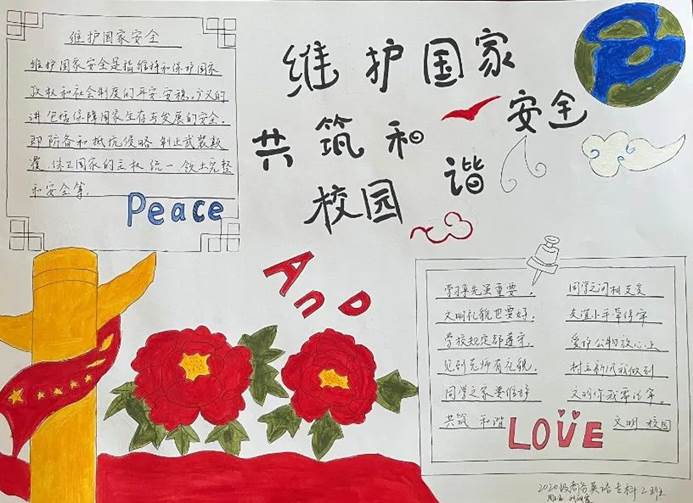 维护国家安全
维护国家安全是指维持和保护国家
政权和社会制度的平安安稳，广义的
讲包括保障国家生存与发展的安全。
即防备和抵抗侵略 制止武装颠
覆，保卫国家的主权 统一 领土完整
和安全等。
Peace
维护国家
安全
共筑和
谐
校园
AnD
学操先最重要，
文明礼貌也要好，
学校规定都遵守，
见到老师有礼貌，
同学之家要维护
共筑 和谐
同学之间相友爱
友谊小手牵得牢
爱护公物放心上
文明你我
文明 校园
LOVE
2020级商务英语专科2班